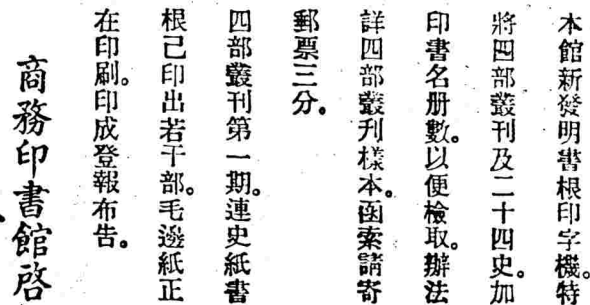 本館新發明書根印字機。特
將四部叢刊及二十四史。加
印書名册數。以便檢取。辦法
詳四部叢刋樣本。函索請寄
郵票三分。
四部叢刊第一期。連史紙書
根已印出若干部。毛邊紙正
在印刷。印成登報布告。
商務印書館啓